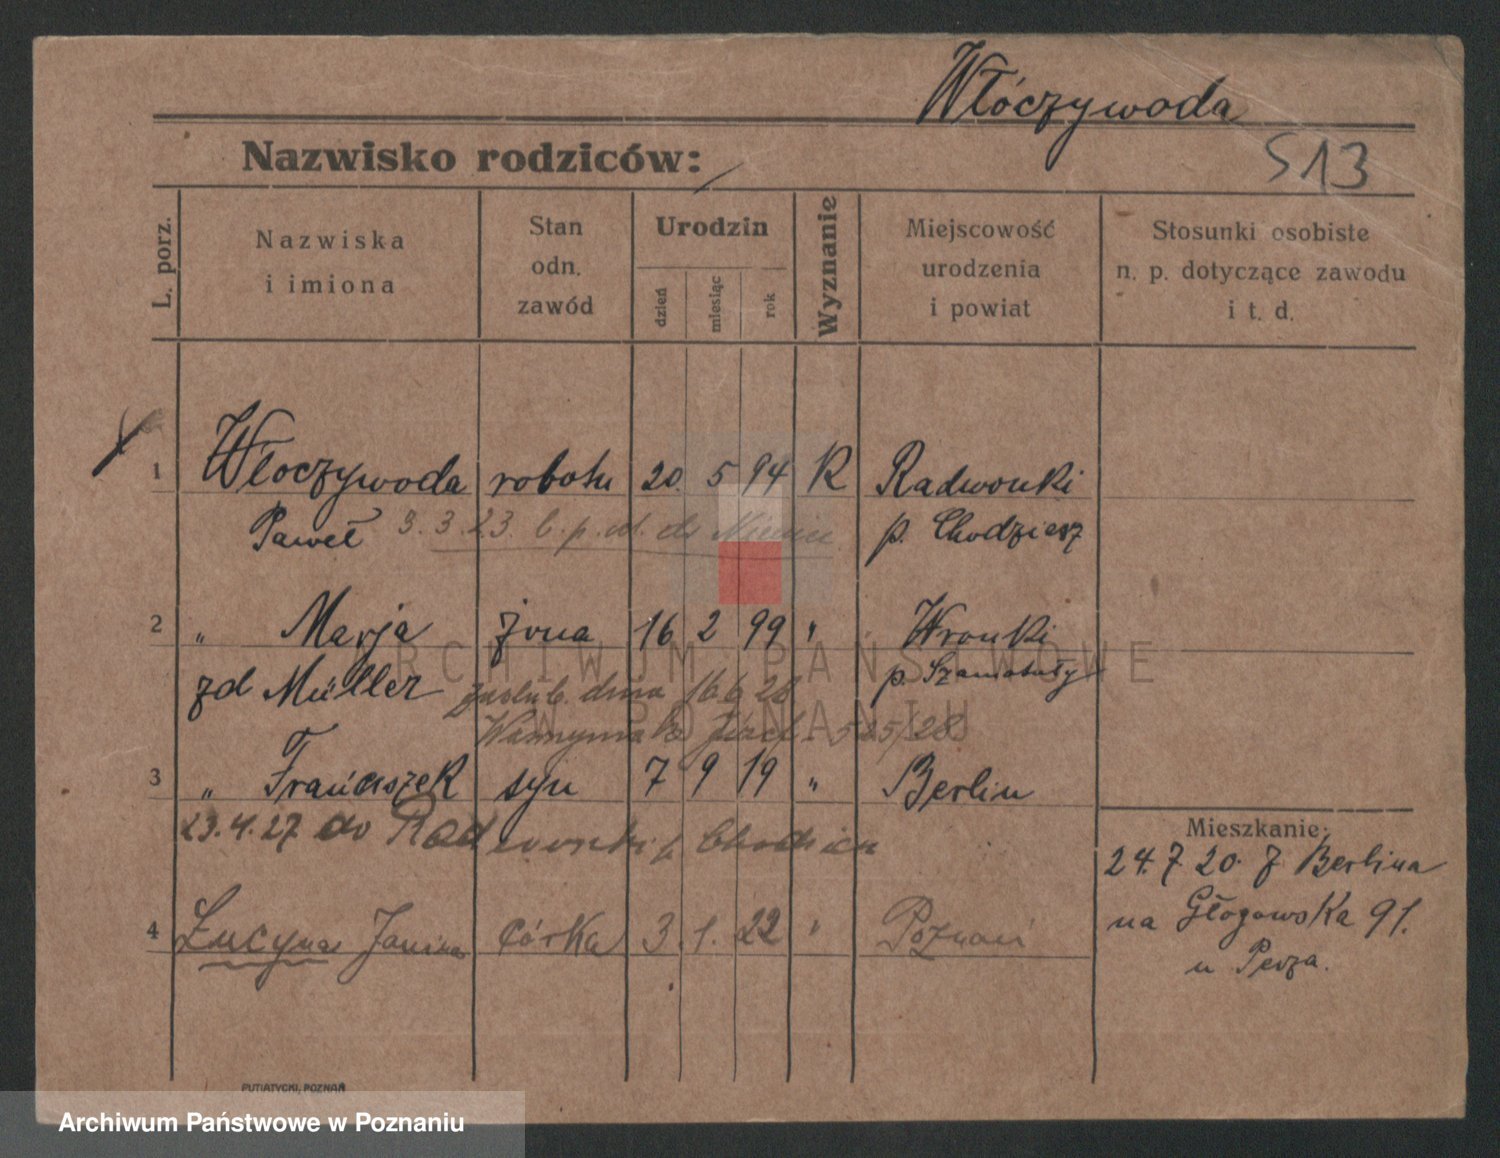 Włóczywoda
Nazwisko rodziców:
513
L. porz.
Nazwiska
i imiona
Stan
odn.
zawód
Urodzin
dzień
miesiąc
rok
Wyznanie
Miejscowość
urodzenia
i powiat
Stosunki osobiste
n. p. dotyczące zawodu
i t. d.
1 Włoczywoda robotn 20. 5 94 R Radwonki
Paweł 3.3.23 b.p. od. do Niemiec p. Chodzież
2 " Marja żona 16 2 99 " Wronki
zd Müller p. Szamotuły
zaślub. dnia 16.6 28
Józef 525/28
3 " Franciszek syn 7 9 19 " Berlin
23.4.27 do Radwonki p. Chodzież
4 Łucyna Janina córka 3. 1. 22 " Poznań
Mieszkanie:
24.7 20. z Berlina
na Głogowska 91.
u Perza.
PUTIATYCKI, POZNAŃ
ARCHIWUM PAŃSTWOWE
W POZNANIU
Archiwum Państwowe w Poznaniu